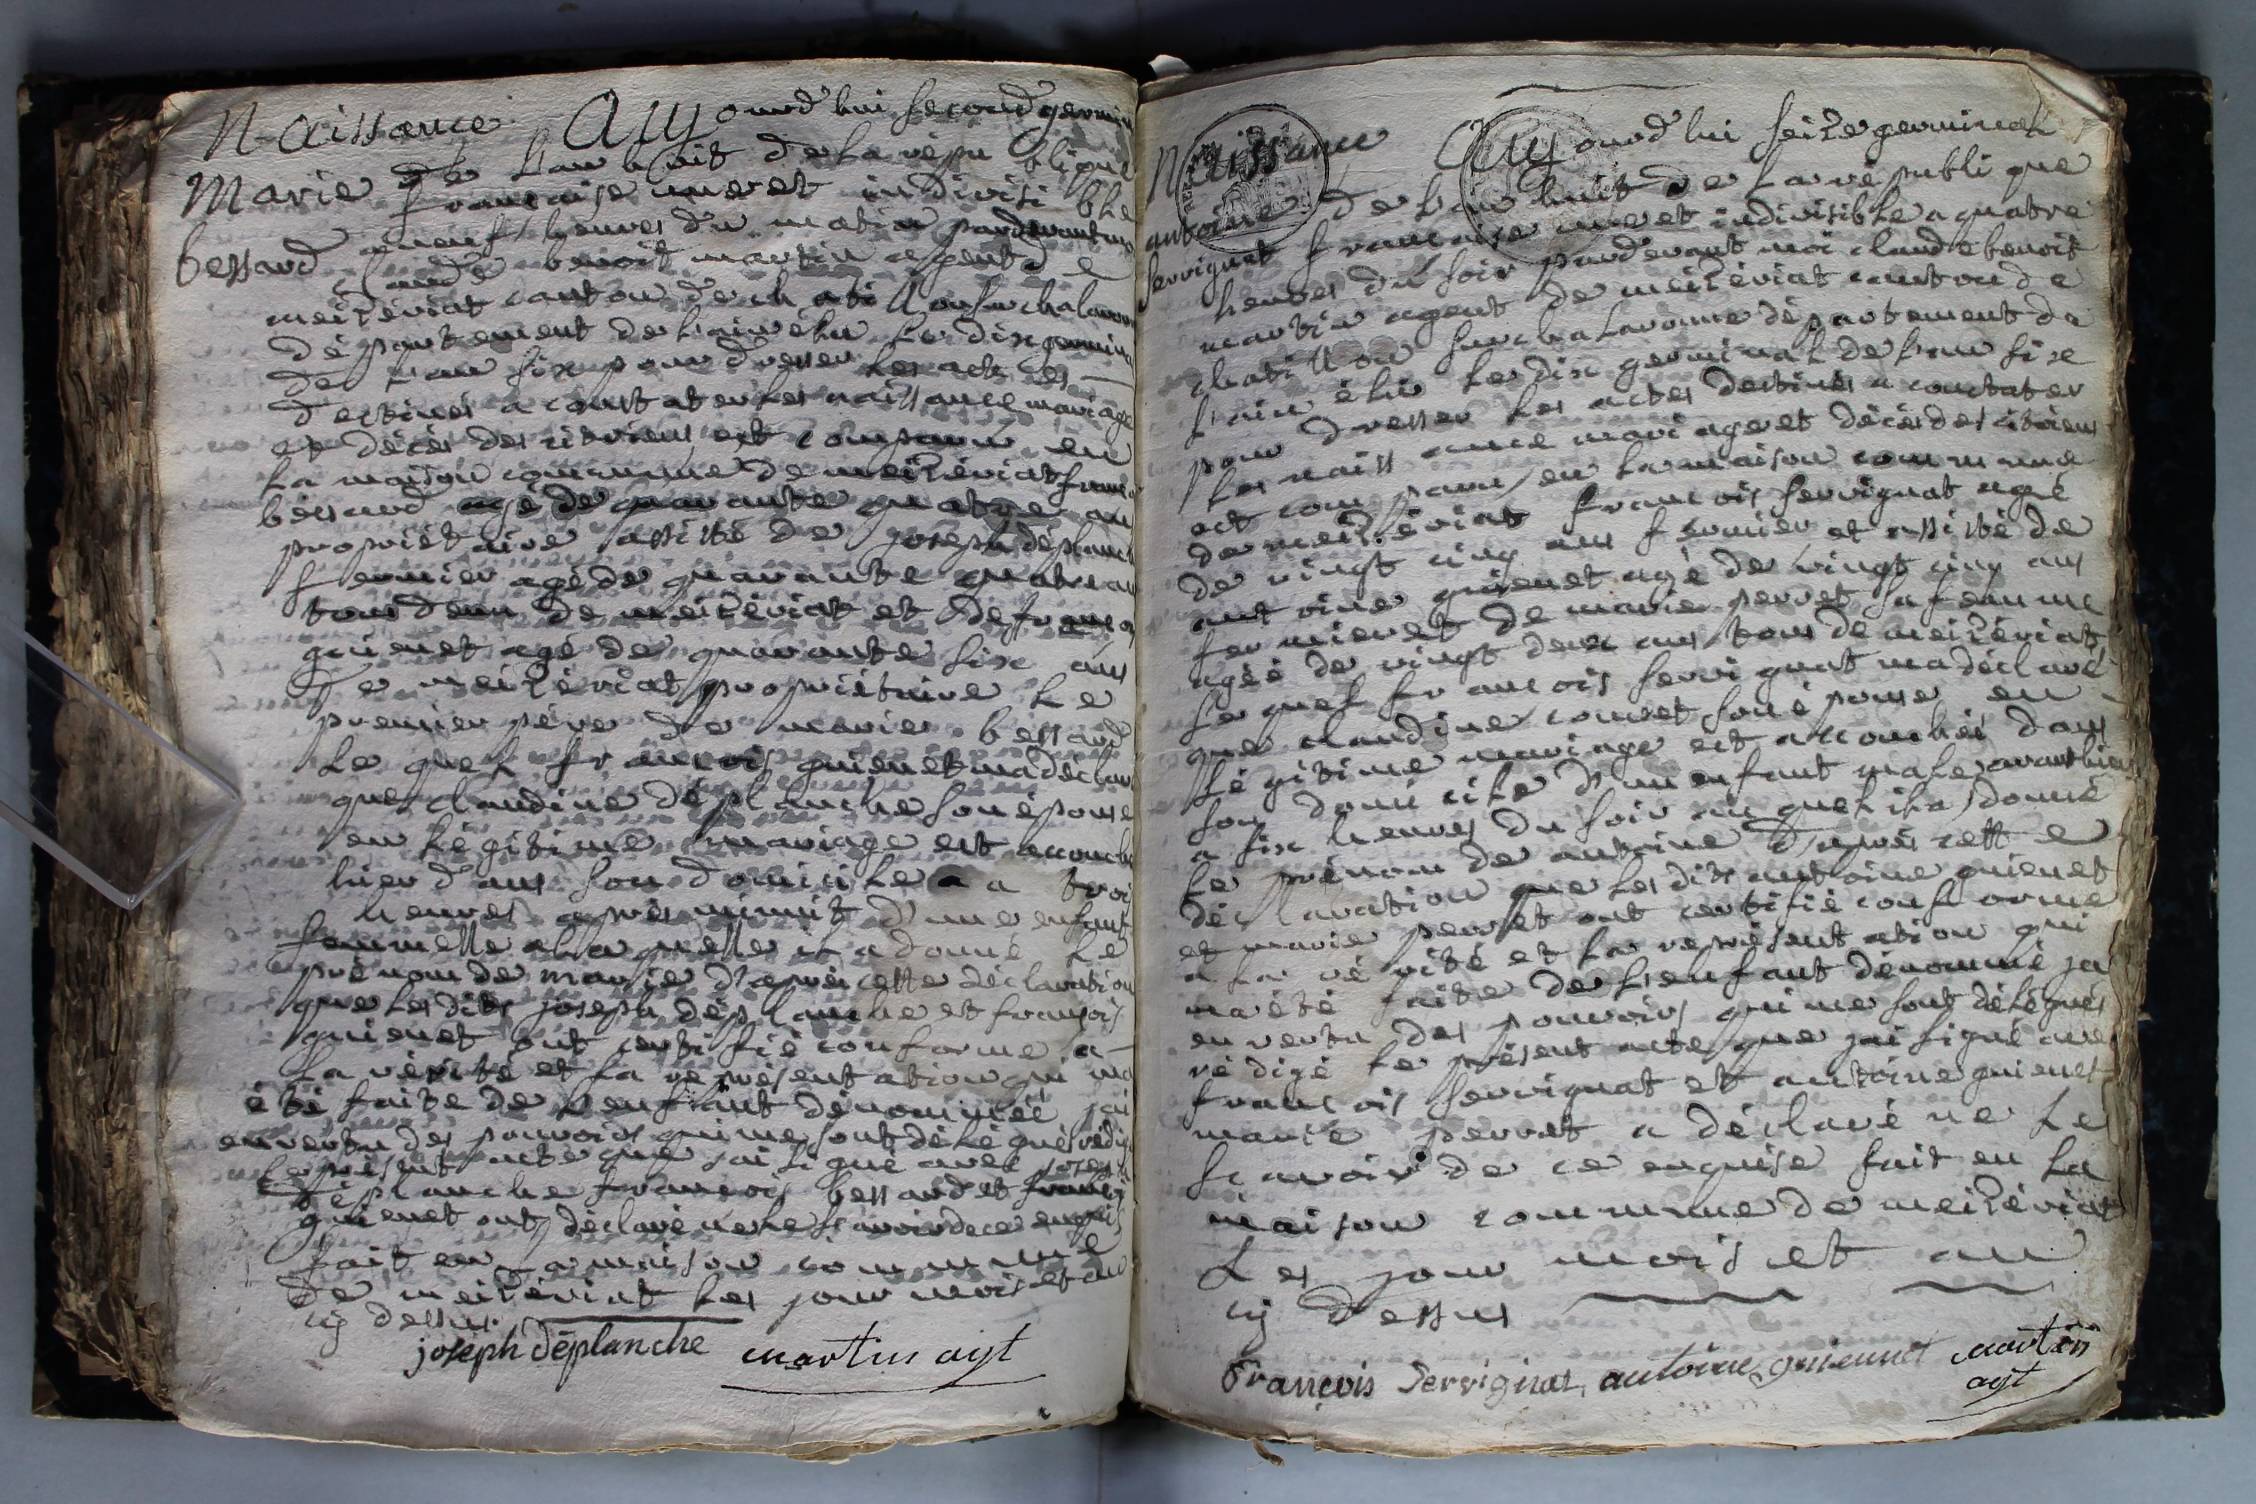 Naissance Aujourd'hui second germin
Marie de l'an huit de la république
bessard francaise une et indivisible
a neuf heures du matin pardevant moi
Claude benoit martin agent de
meizériat canton de chatillon sur chalaronn
département de l'ain élu le dix germin
de l'an six pour dresser les actes
destines a constater les naissance mariage
et décès des citoiens est comparu en
la maison commune de meizériat franco
bessard age de quarante quatre an
propriétaire assisté de joseph déplanch
fermier agé de quarante quatre an
tous deux de meizériat et de francois
guienet agé de quarante six ans
de meizériat propriétaire le
premier père de marie bessard
le quel francois guienet ma déclaré
que claudine déplanche son épouse
en légitime mariage est accouché
hier dans son domicile a troi
heures après minuit d'une enfant
femmelle a la quelle il a donné le
prénom de marie d'après cette déclaration
que les dits joseph déplanche et françois
guienet ont certifié conforme a
la vérité et la représentation qui ma
été faite de l'enfant dénommée jai
en vertu des pouvoirs qui me sont délégués rédig
le présent acte que jai signé avec josep
déplanche francois bessard et franco
guienet ont déclaré ne le scavoir de ce enquis
fait en la maison commune
de meizériat les jour mois et an
cy dessus.
joseph déplanche martin agt
Naissance Aujourd'hui seize germinal
antoine de l'an huit de la république
servignat francaise une et indivisible a quatre
heures du soir pardevant moi claude benoit
martin agent de meizériat canton de
chatillon sur chalaronne département de
l'ain élu le dix germinal de l'an six
pour dresser les actes destinés a constater
les naissance mariage et décès des citoiens
est comparu en la maison commune
de meizériat francois servignat agé
de vingt cinq ans fermier et assisté de
antoine guienet agé de vingt cinq ans
fermier et de marie perret sa femme
agée de vingt deux ans tous de meizériat
le quel francois servignat ma déclaré
que claudine couret son épouse en
légitime mariage est accouchée dans
son domicile d'un enfant male avant hier
a six heures du soir au quel il a donné
le prénom de antoine d'après cette
déclaration que les dits antoine guienet
et marie perret ont certifié conforme
a la vérité et la représentation qui
ma été faite de l'enfant dénommé jai
en vertu des pouvoirs qui me sont délégués
rédigé le présent acte que jai signé avec
francois servignat et antoine guienet
marie perret a déclaré ne le
scavoir de ce enquise fait en la
maison commune de meizériat
les jour mois et an
cy dessus
François Servignat antoine guiennet martin
agt